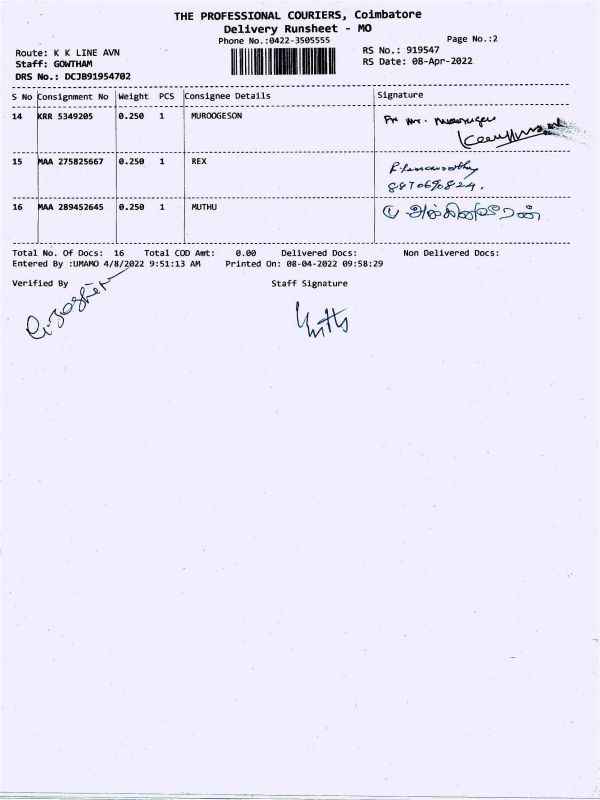 THE PROFESSIONAL COURIERS, Coimbatore
Delivery Runsheet - MO
Phone No.:0422-3505555
Page No.:2
Route: K K LINE AVN
RS No.: 919547
Staff: GOWTHAM
RS Date: 08-Apr-2022
DRS No.: DCJB91954702
S No Consignment No Weight PCS Consignee Details Signature
14 KRR 5349205 0.250 1 MUROOGESON
15 MAA 275825667 0.250 1 REX
16 MAA 289452645 0.250 1 MUTHU
Total No. Of Docs: 16 Total COD Amt: 0.00 Delivered Docs: Non Delivered Docs:
Entered By :UMAMO 4/8/2022 9:51:13 AM Printed On: 08-04-2022 09:58:29
Verified By Staff Signature